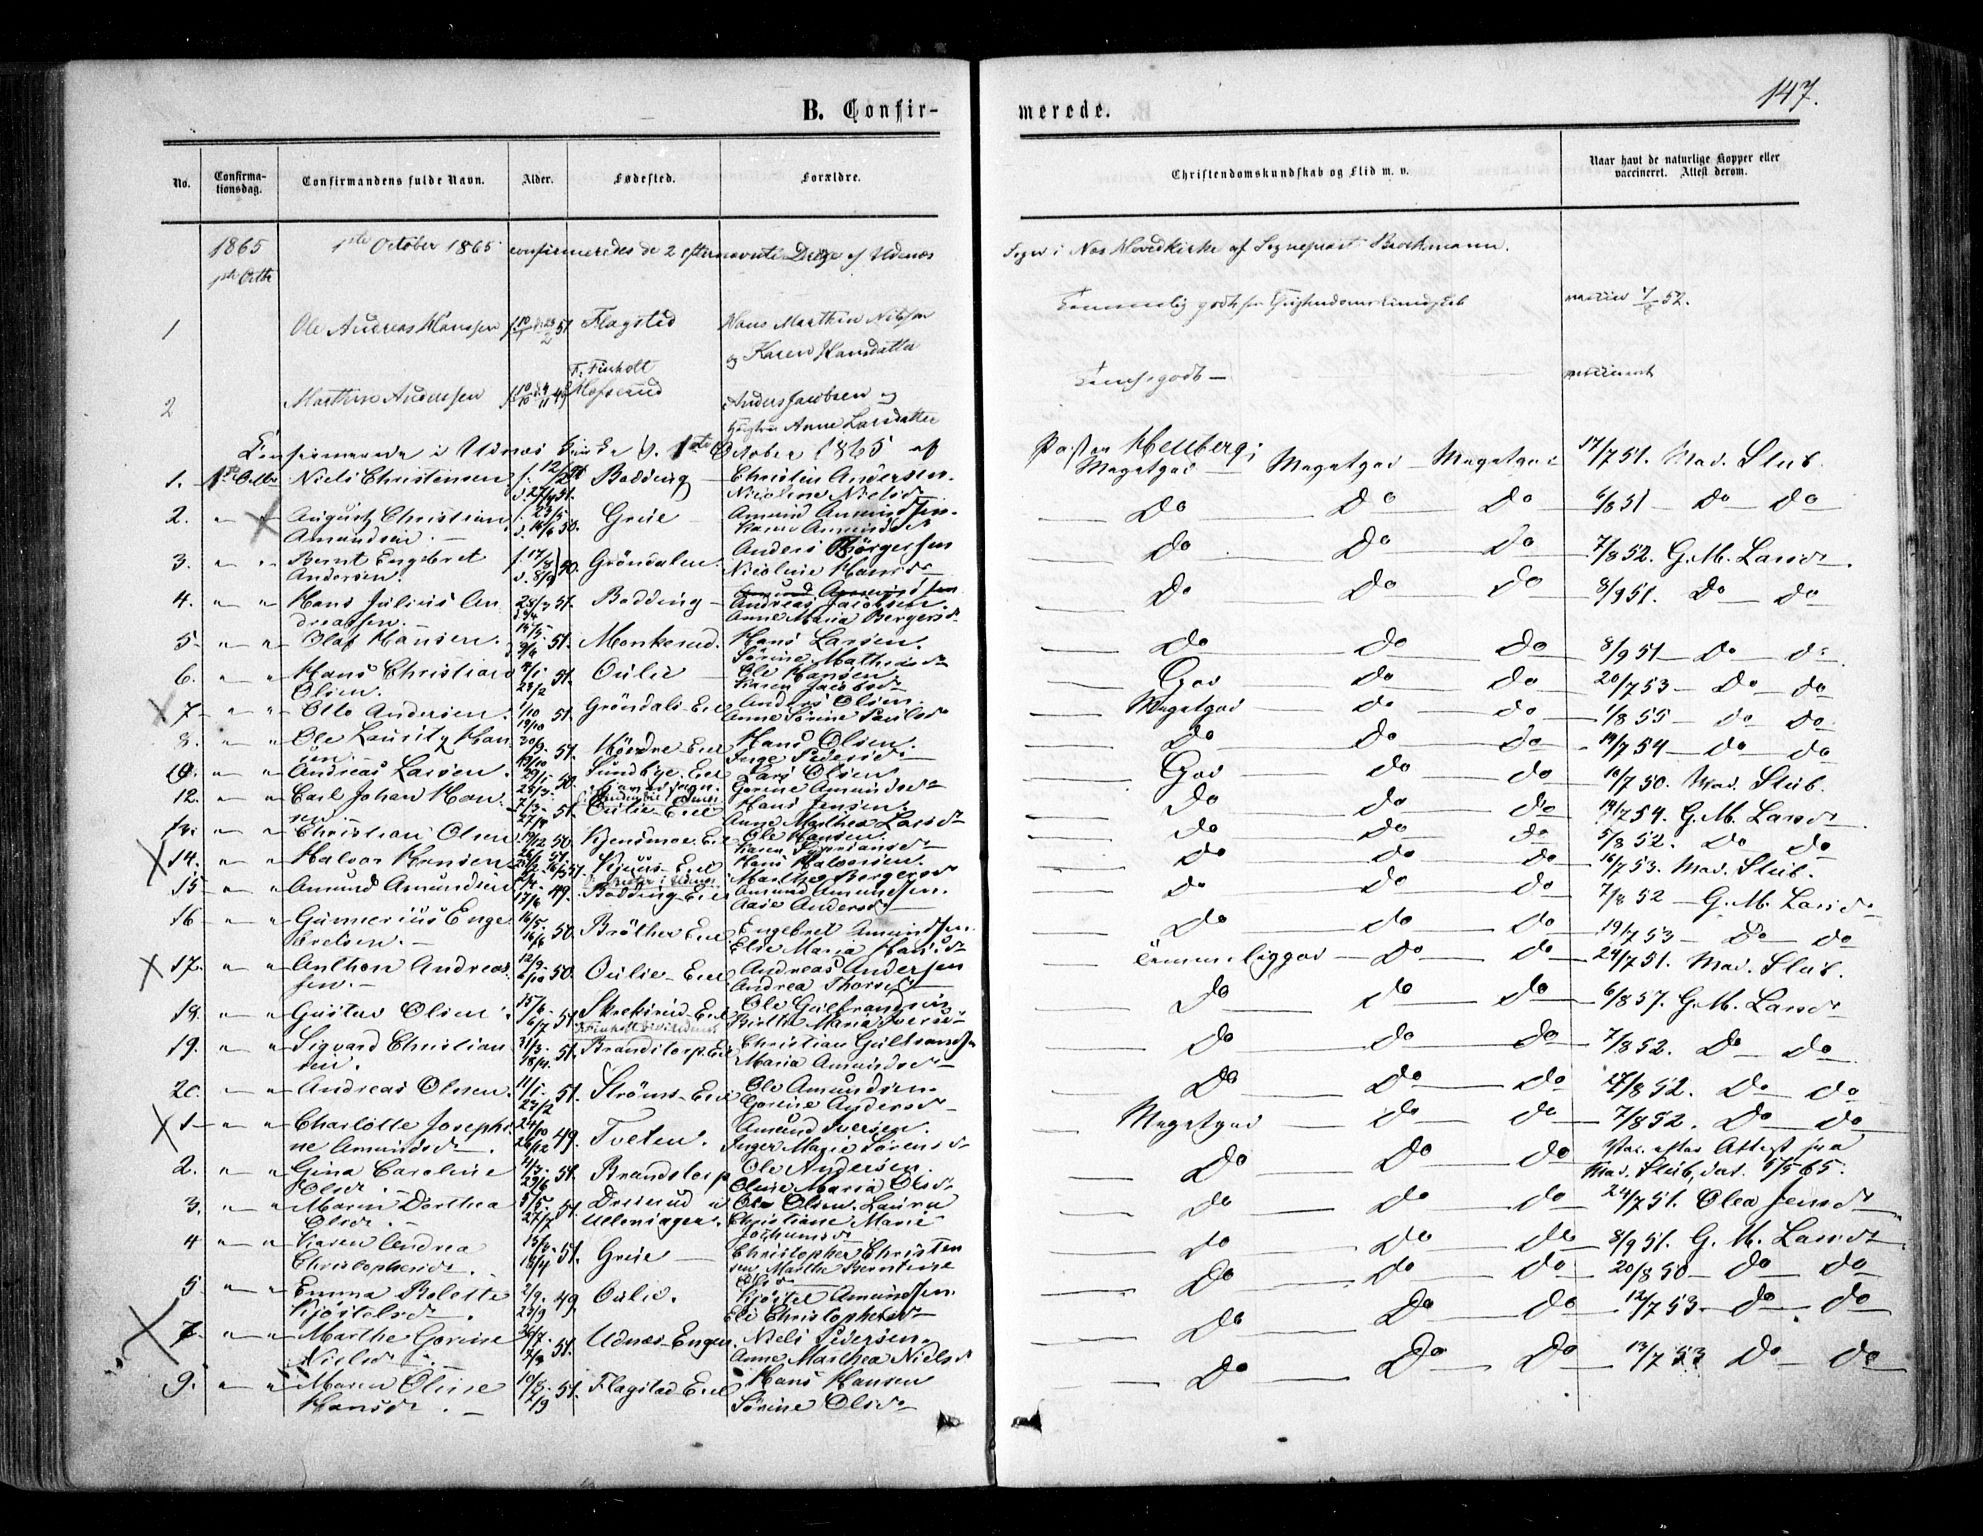 147.
B. Confirmerede.
No. Confirmationsdag. Confirmandens fulde Navn. Alder. Fødested. Forældre. Christendomskundskab og Flid m. v. Naar havt de naturlige Kopper eller vaccineret. Attest derom.
1865 1ste October 1865 confirmeredes de 2 efternævnte Drenge af Udenæs Sogn i Nes Hovedkirke af Sognepræst Brochmann.
1 Ole Andreas Hanssen 51 Flagstad Hans Marthin Nilssen og Karen Hansdatter Temmelig god Christendomskundskab 52.
2 Marthin Anderssen Hofserud Anders Jacobsen og Anne Larsdatter vaccineret
Confirmerede i Udnæs Kirke d. 1ste October 1865 af Pastor Hellberg;
1. 1ste Octbr Niels Christensen f. 12/2 d. 27/4 51. Bodding Christin Andersen. Nicoline Nielsd. Megetgod Megetgod Megetgod 17/7 51. Mad. Stub.
2. " " August Christian Amundsen. f. 23/5 d. 16/6 50. Greie Amund Amundsen. Karen Amundsd. Do Do Do 6/8 51 Do Do
3. " " Bernt Engebret Andersen. f. 17/8 d. 8/9 50. Gröndalen. Anders Börgersen Nicoline Hansd. Do Do Do 7/8 52. G. M. Larsd.
4. " " Hans Julius Andreassen. 25/3 51. Bodding Andreas Jacobsen. Anne Maria Bergersd. Do Do Do 8/9 51. Do Do
5 " " Olaf Hansen. 51. Monkerud. Hans Larsen. Sörine Mathisd. Do Do Do 8/9 51 Do Do
6. " " Hans Christian Olsen. 23/2 51. Oulie Ole Hansen Karen Jacobsd. God Do Do 20/7 53 Do Do
7 " " Otto Andersen. 1/10 19/10 51. Gröndals Eie Anders Olsen. Anne Sörine Paulsd. Megetgod Do Do 1/8 55 Do Do
8. " " Ole Lauritz Hansen. 30/9 51. Hördre Eie Hans Olsen. Inge Pedersd. Do Do Do 14/7 54 Do Do
10. " " Andreas Larsen. 50. Sundbye Eie Lars Olsen Gorine Amundsd. God Do Do 10/7 50. Mad. Stub.
12. " " Carl Johan Hansen 7/3 51. Oulie Eie Hans Jensen. Anne Marthea Larsd. Do Do Do 14/7 54. G. M. Larsd.
13. " " Christian Olsen 50. Kjensmoe Eie Ole Hansen. Do Do Do 5/8 52. Do Do
14. " " Halvor Hansen 51. Eie Hans Halvorsen. Marthe Bergersd. Do Do Do 16/7 53. Mad. Stub.
15 " " Amund Amundsen 17/6 49. Bodding Eie Amund Amundsen. Aase Andersd. Do Do Do 7/8 52 G. M. Larsd.
16 " " Gunnerius Engebretsen. 16/5 16/6 50 Bråther Eie Engebret Amundsen. Elie Maria Hansd. Do Do Do 19/7 53 Do Do
17. " " Anthon Andreassen. 12/9 50. Oulie Eie Andreas Andersen Andrea Thorsd. Temmeliggod Do Do 24/7 51. Mad. Stub.
18. " " Gustav Olsen. 15/6 6/7 51 Skreksrud Eie Ole Gulbrandsen Birthe Maria Iversd. Do Do Do 6/8 57. G. M. Larsd.
19. " " Sigvard Christiansen. 31/3 18/4 51. Brandstorp Eie Christian Gulbrandsen Maria Amundsd. Do Do Do 7/8 52. Do Do
20. " " Andreas Olsen. 11/1 23/2 51. Ströms Eie Ole Amundsen. Gorine Andersd. Do Do Do 17/8 52. Do Do
1 " " Charlotte Josephine Amundsd. 24/10 26/12 49. Tveten. Amund Iversen. Inger Marie Sörensd. Megetgod Do Do 7/8 52. Do Do
2. " " Gina Caroline Olsd. 51. Brandstorp Ole Andersen. Oline Maria Olsd. Do Do Do Vac. efter Attest fra Mad. Stub, dat. 5/5 65.
3. " " Maren Dorthea Olsd. 5/5 27/7 51. Ole Olsen. Laura Christiane Marie Do Do Do 24/7 51. Olea Jensd.
4 " " Karen Andrea Christophersd. 18/4 51. Greie Christopher Christensen Marthe Berntine Olsd. Do Do Do 8/9 51. G. M. Larsd.
5 " " Emma Bolette Kjöstelsd. 2/9 23/9 49. Oulie. Kjöstel Amundsen Eli Christophersd. Do Do Do 20/8 50 Do Do
7. " " Marthe Gorine Nielsd. 26/7 51. Udnæs Engen. Niels Pedersen. Anne Marthea Nielsd. Do Do Do 12/7 53 Do Do
9. " " Maren Oline Hansd. 10/8 51. Flagstad Eie Hans Hansen Sörine Olsd. Do Do Do 13/7 53 Do Do